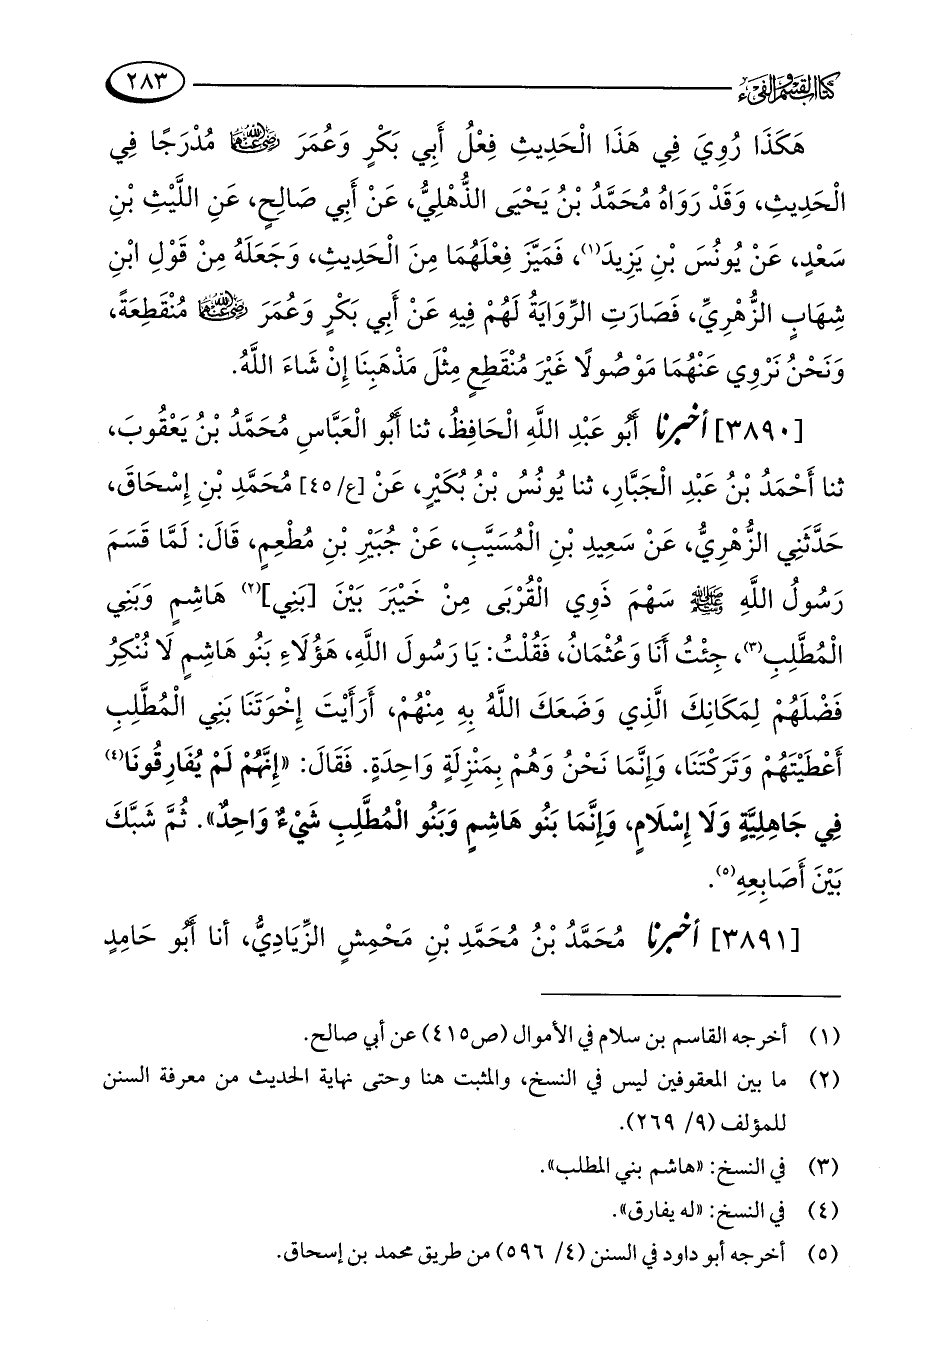 كتاب القسم والفيء
٢٨٣
هَكَذَا رُوِيَ فِي هَذَا الْحَدِيثِ فِعْلُ أَبِي بَكْرٍ وَعُمَرَ رضي الله عنهما مُدْرَجًا فِي
الْحَدِيثِ، وَقَدْ رَوَاهُ مُحَمَّدُ بْنُ يَحْيَى الذُّهْلِيُّ، عَنْ أَبِي صَالِحٍ، عَنِ اللَّيْثِ بْنِ
سَعْدٍ، عَنْ يُونُسَ بْنِ يَزِيدَ(١)، فَمَيَّزَ فِعْلَهُمَا مِنَ الْحَدِيثِ، وَجَعَلَهُ مِنْ قَوْلِ ابْنِ
شِهَابٍ الزُّهْرِيِّ، فَصَارَتِ الرِّوَايَةُ لَهُمْ فِيهِ عَنْ أَبِي بَكْرٍ وَعُمَرَ رضي الله عنهما مُنْقَطِعَةً،
وَنَحْنُ نَرْوِي عَنْهُمَا مَوْصُولًا غَيْرَ مُنْقَطِعٍ مِثْلَ مَذْهَبِنَا إِنْ شَاءَ اللَّهُ.
[٣٨٩٠] أخبرنا أَبُو عَبْدِ اللَّهِ الْحَافِظُ، ثنا أَبُو الْعَبَّاسِ مُحَمَّدُ بْنُ يَعْقُوبَ،
ثنا أَحْمَدُ بْنُ عَبْدِ الْجَبَّارِ، ثنا يُونُسُ بْنُ بُكَيْرٍ، عَنْ [ع/٤٥] مُحَمَّدِ بْنِ إِسْحَاقَ،
حَدَّثَنِي الزُّهْرِيُّ، عَنْ سَعِيدِ بْنِ الْمُسَيَّبِ، عَنْ جُبَيْرِ بْنِ مُطْعِمٍ، قَالَ: لَمَّا قَسَمَ
رَسُولُ اللَّهِ ﷺ سَهْمَ ذَوِي الْقُرْبَى مِنْ خَيْبَرَ بَيْنَ [بَنِي](٢) هَاشِمٍ وَبَنِي
الْمُطَّلِبِ(٣)، جِئْتُ أَنَا وَعُثْمَانُ، فَقُلْتُ: يَا رَسُولَ اللَّهِ، هَؤُلَاءِ بَنُو هَاشِمٍ لَا نُنْكِرُ
فَضْلَهُمْ لِمَكَانِكَ الَّذِي وَضَعَكَ اللَّهُ بِهِ مِنْهُمْ، أَرَأَيْتَ إِخْوَتَنَا بَنِي الْمُطَّلِبِ
أَعْطَيْتَهُمْ وَتَرَكْتَنَا، وَإِنَّمَا نَحْنُ وَهُمْ بِمَنْزِلَةٍ وَاحِدَةٍ. فَقَالَ: «إِنَّهُمْ لَمْ يُفَارِقُونَا(٤)
فِي جَاهِلِيَّةٍ وَلَا إِسْلَامٍ، وَإِنَّمَا بَنُو هَاشِمٍ وَبَنُو الْمُطَّلِبِ شَيْءٌ وَاحِدٌ». ثُمَّ شَبَّكَ
بَيْنَ أَصَابِعِهِ(٥).
[٣٨٩١] أخبرنا مُحَمَّدُ بْنُ مُحَمَّدِ بْنِ مَحْمِشٍ الزِّيَادِيُّ، أنا أَبُو حَامِدٍ
(١) أخرجه القاسم بن سلام في الأموال (ص٤١٥) عن أبي صالح.
(٢) ما بين المعقوفين ليس في النسخ، والمثبت هنا وحتى نهاية الحديث من معرفة السنن
للمؤلف (٩/ ٢٦٩).
(٣) في النسخ: «هاشم بني المطلب».
(٤) في النسخ: «له يفارق».
(٥) أخرجه أبو داود في السنن (٤/ ٥٩٦) من طريق محمد بن إسحاق.